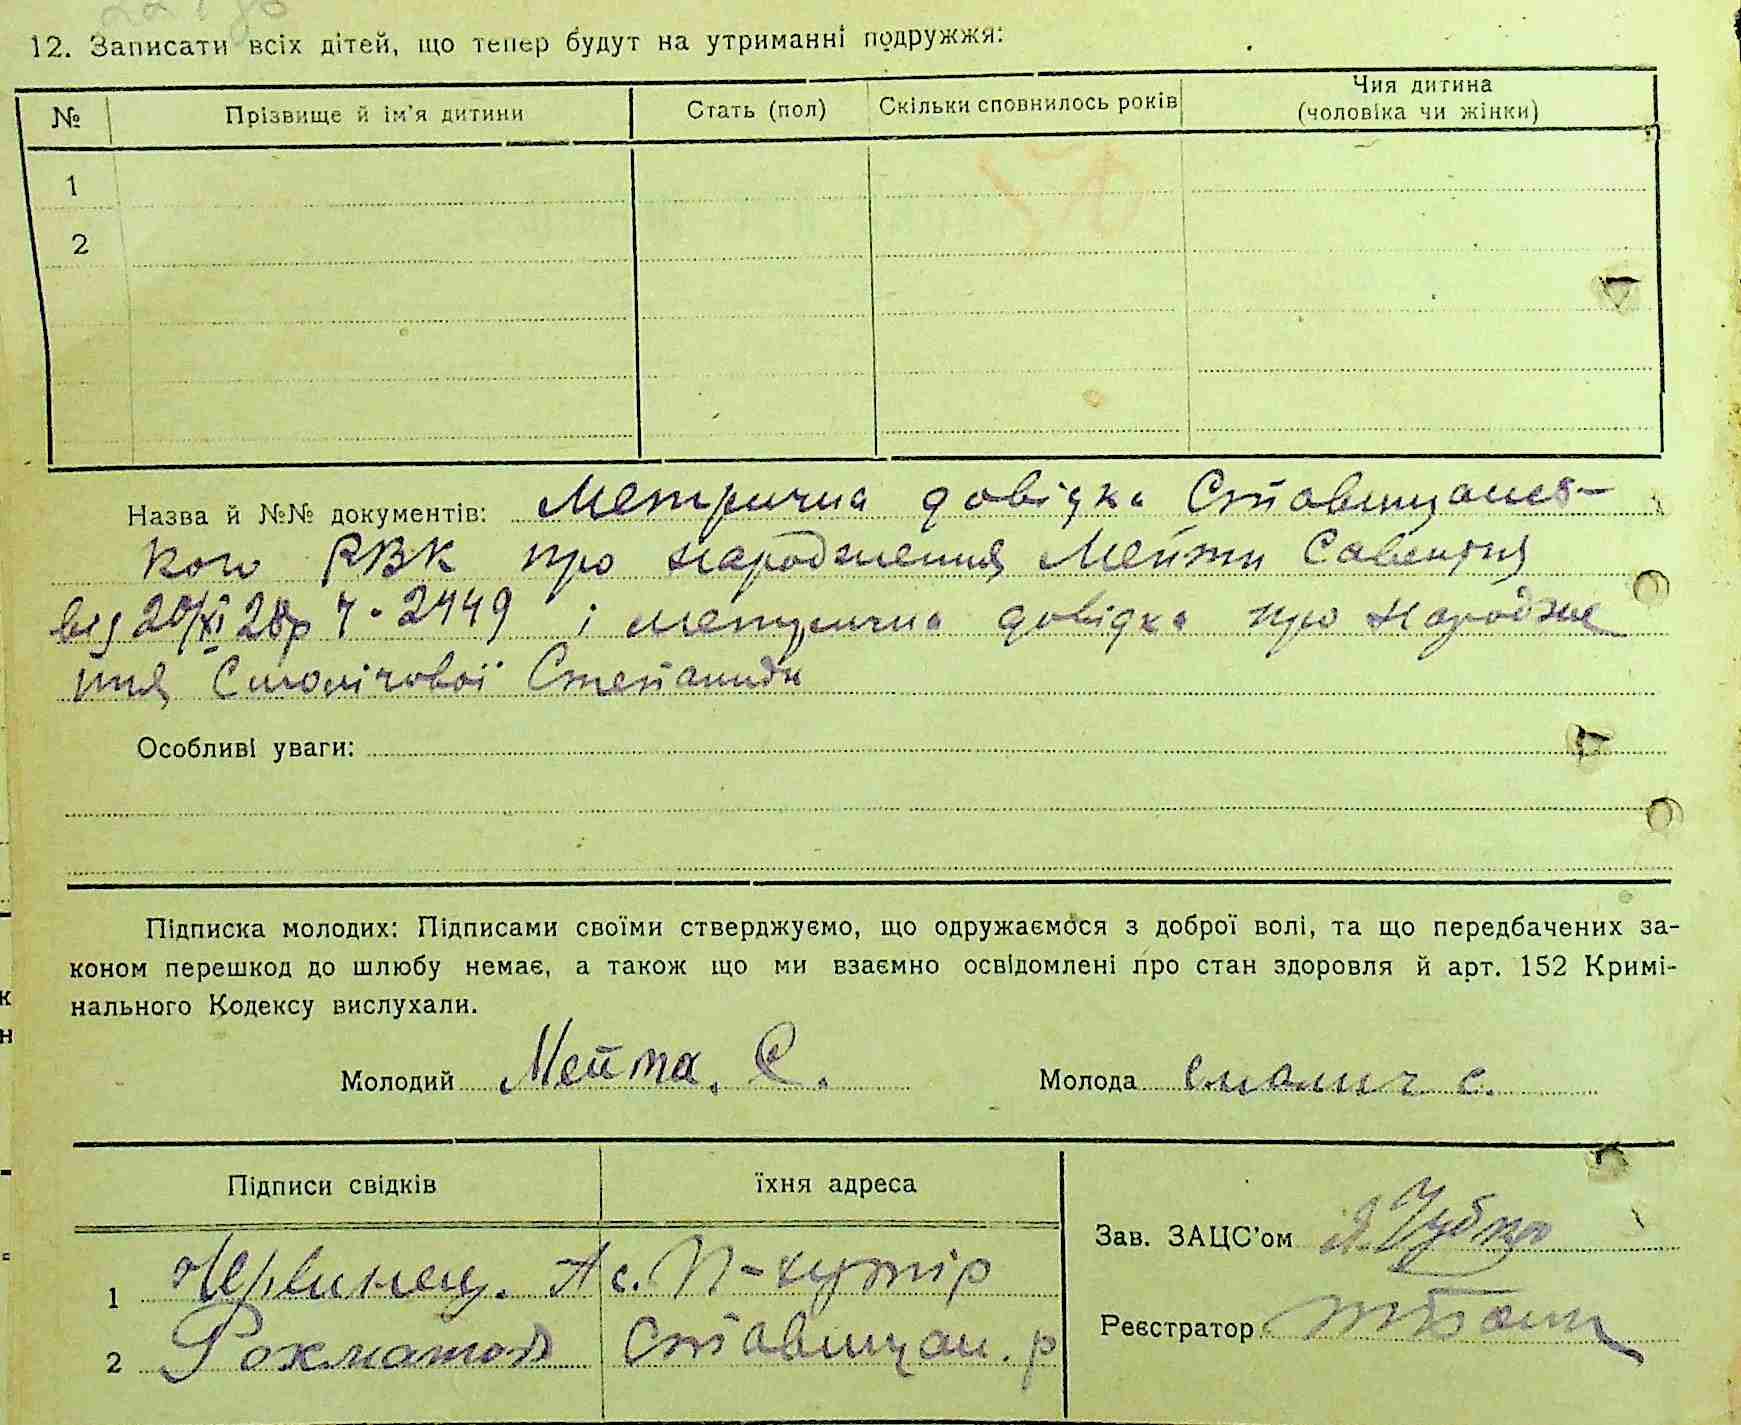 12. Записати всіх дітей, що тепер будут на утриманні подружжя:
№ Прізвище й ім'я дитини Стать (пол) Скільки сповнилось років Чия дитина
(чоловіка чи жінки)
1
2
Назва й №№ документів: Метрична довідка Ставищансь-
кого РВК про народження Мейти Савентія
від 20/XI 28р Ч. 2449 і метрична довідка про народже
ння Смолічової Степаниди
Особливі уваги:
Підписка молодих: Підписами своїми стверджуємо, що одружаємося з доброї волі, та що передбачених за-
коном перешкод до шлюбу немає, а також що ми взаємно освідомлені про стан здоровля й арт. 152 Кримі-
нального Кодексу вислухали.
Молодий Мейта. С. Молода Смолич с.
Підписи свідків їхня адреса
Зав. ЗАЦС'ом
1 Червинец. А с. П-хутір
Реєстратор
2 Ставищан. р